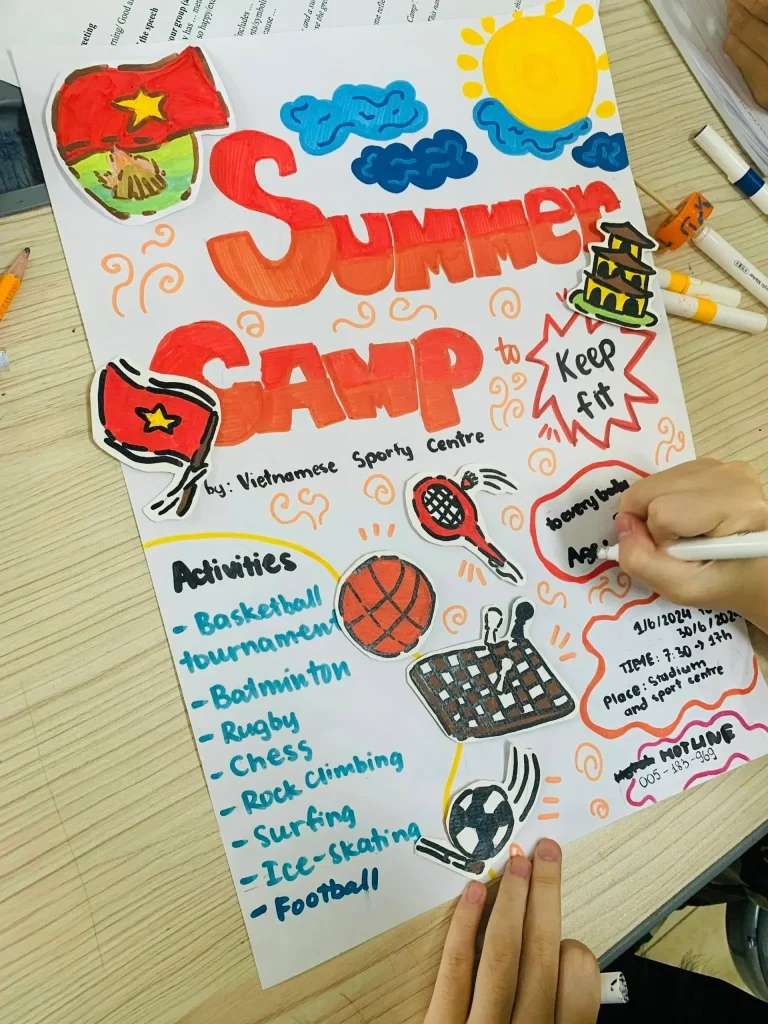 Summer
Camp to
Keep
fit
by: Vietnamese Sporty Centre
to every body
Activities
- Basketball
tournament
- Batminton
- Rugby
- Chess
- Rock climbing
- Surfing
- Ice-skating
- Football
1/6/2024
30/6/2024
TIME: 7:30 → 17h
Place: Stadium
and sport centre
HOTLINE
005-183-969